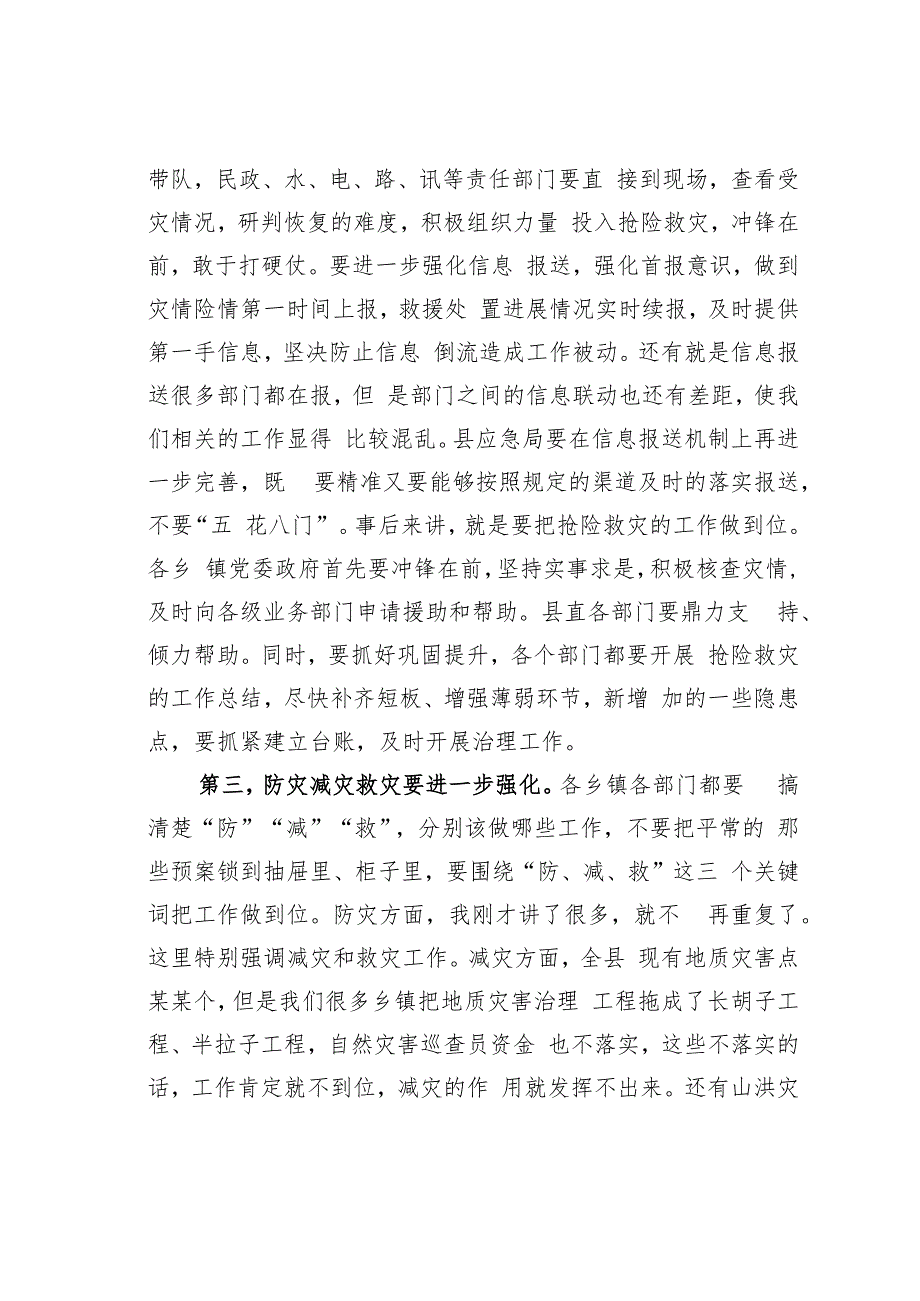 带队，民政、水、电、路、讯等责任部门要直 接到现场，查看受
灾情况，研判恢复的难度，积极组织力量 投入抢险救灾，冲锋在
前，敢于打硬仗。要进一步强化信息 报送，强化首报意识，做到
灾情险情第一时间上报，救援处 置进展情况实时续报，及时提供
第一手信息，坚决防止信息 倒流造成工作被动。还有就是信息报
送很多部门都在报，但 是部门之间的信息联动也还有差距，使我
们相关的工作显得 比较混乱。县应急局要在信息报送机制上再进
一步完善，既 要精准又要能够按照规定的渠道及时的落实报送，
不要“五 花八门”。事后来讲，就是要把抢险救灾的工作做到位。
各乡 镇党委政府首先要冲锋在前，坚持实事求是，积极核查灾情，
及时向各级业务部门申请援助和帮助。县直各部门要鼎力支 持、
倾力帮助。同时，要抓好巩固提升，各个部门都要开展 抢险救灾
的工作总结，尽快补齐短板、增强薄弱环节，新增 加的一些隐患
点，要抓紧建立台账，及时开展治理工作。
第三，防灾减灾救灾要进一步强化。各乡镇各部门都要 搞
清楚“防”“减”“救”，分别该做哪些工作，不要把平常的 那
些预案锁到抽屉里、柜子里，要围绕“防、减、救”这三 个关键
词把工作做到位。防灾方面，我刚才讲了很多，就不 再重复了。
这里特别强调减灾和救灾工作。减灾方面，全县 现有地质灾害点
某某个，但是我们很多乡镇把地质灾害治理 工程拖成了长胡子工
程、半拉子工程，自然灾害巡查员资金 也不落实，这些不落实的
话，工作肯定就不到位，减灾的作 用就发挥不出来。还有山洪灾